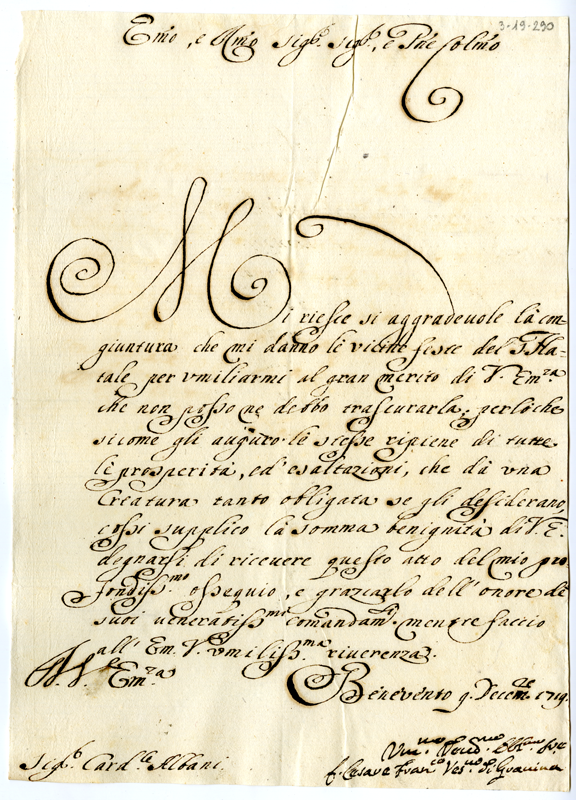 3-19-290
Emo, e Rmo Sigr. Sigr., e Pne Colmo
Mi riesce si aggradevole la con-
giuntura che mi danno le vicine feste del S. Na-
tale per vmiliarmi al gran merito di V. Emza
che non posso ne debbo trascurarla; perloche
sicome gli auguro le stesse ripiene di tutte
le prosperità, ed' esaltazioni, che dà vna
Creatura tanto obligata se gli desiderano,
cossi supplico la somma benignità di V. E.
degnarsi di ricevere questo atto del mio pro
fondissmo ossequio, e graziarlo dell' onore de
suoi veneratissmi comandamti. mentre faccio
all' Em. V. vmilissma riverenza.
Emza
Benevento 9. Decemre 1719.
Sigr. Cardle Albani.
f. Cesare Franco Vesvo di Gravina